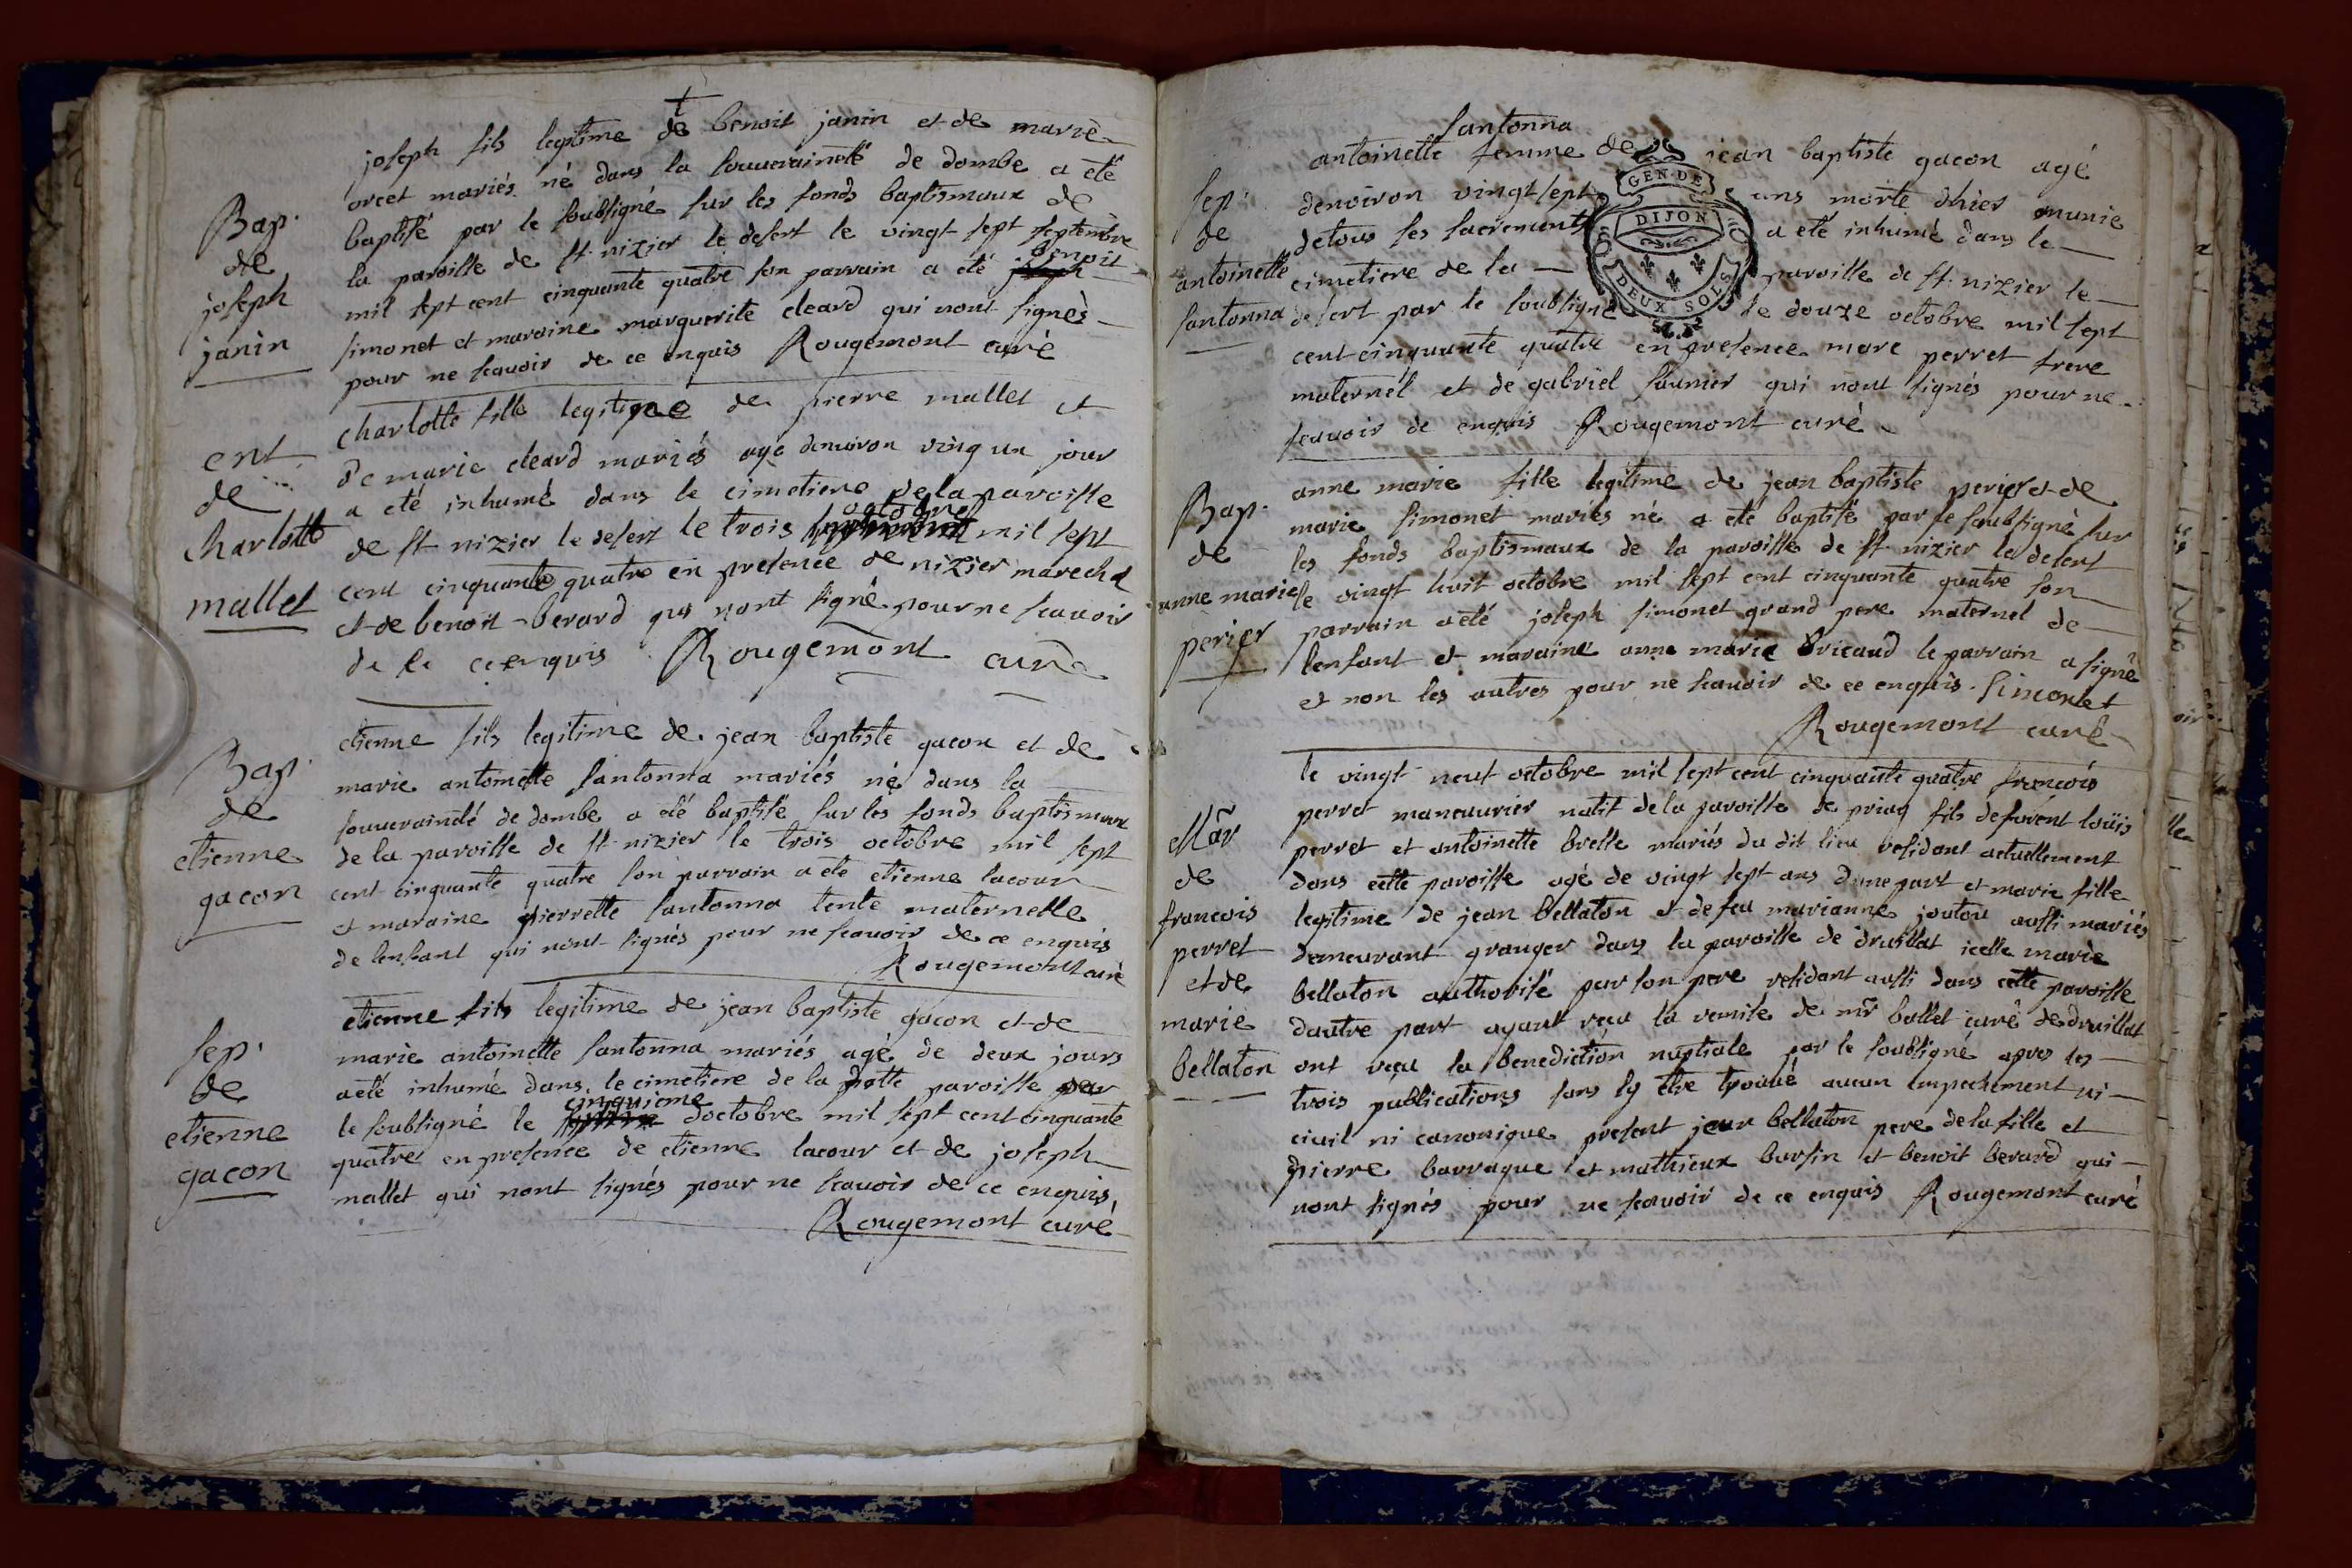 t
Bap.
de
joseph
janin
joseph fils legitime de benoit janin et de marie
orcet mariés né dans la souveraineté de dombe a été
baptisé par le soubsigné sur les fonds baptismaux de
la paroisse de st. nizier le desert le vingt sept septembre
mil sept cent cinquante quatre son parrain a été joseph benoit
simonet et maraine marguerite cleard qui nont signès
pour ne scauoir de ce enquis Rougemont curè
ent
de
charlotte
mallet
charlotte fille legitime de pierre mallet et
de marie cleard mariés agé denuiron ving un jour
a eté inhumé dans le cimetiere de la paroisse
de st nizier le desert le trois octobre mil sept
cent cinquante quatre en presence de nizier marechal
et de benoit berard qui nont signé pour ne scauoir
de le ce enquis Rougemont curè
Bap.
de
etienne
gacon
etienne fils legitime de jean baptiste gacon et de
marie antoinette santonna mariés né dans la
souuerainété de dombe a été baptisé sur les fonds baptismaux
de la paroisse de st. nizier le trois octobre mil sept
cent cinquante quatre son parrain a été etienne lacour
et maraine pierrette santonna tente maternelle
de lenfant qui nont signés pour ne scauoir de ce enquis
Rougemont curè
sep.
de
etienne
gacon
etienne fils legitime de jean baptiste gacon et de
marie antoinette santonna mariés agé de deux jours
a été inhumé dans le cimetiere de la dotte paroisse par
le soubsigné le cinquieme doctobre mil sept cent cinquante
quatre en presence de etienne lacour et de joseph
mallet qui nont signés pour ne scauoir de ce enquis
Rougemont curè
GEN. DE
DIJON
DEUX SOLS
sep.
de
antoinette
santonna
santonna
antoinette femme de jean baptiste gacon agé
denoiron vingt sept ans morte dhier munie
de tous ses sacrements a été inhumé dans le
cimetiere de la paroisse de st. nizier le
desert par le soubsigné le douze octobre mil sept
cent cinquante quatre en presence marc perret frere
maternel et de gabriel saunier qui nont signés pour ne
scauoir de enquis Rougemont curè
Bap.
de
anne marie
perier
anne marie fille legitime de jean baptiste perier et de
marie simonet mariés né a eté baptisé par le soubsigné sur
les fonds baptismaux de la paroisse de st. nizier le desert
le vingt huit octobre mil sept cent cinquante quatre son
parrain a été joseph simonet grand pere maternel de
lenfant et maraine anne marie bricaud le parrain a signé
et non les autres pour ne scauoir de ce enquis. simonet
Rougemont curè
Mar
de
francois
perret
et de
marie
bellaton
le vingt neuf octobre mil sept cent cinquante quatre francois
perret maneuurier natif de la paroisse de priay fils de furent loüis
perret et antoinette brette mariés du dit lieu residant actuellement
dans cette paroisse agé de vingt sept ans dune part et marie fille
legitime de jean bellaton et de feu marianne joutou aussi mariés
demeurant granger dans la paroisse de druillat icelle marie
bellaton authorisé par son pere residant aussi dans cette paroisse
dautre part ayant recu la remise de mr ballet curé de druillat
ont recu la benediction nuptiale par le soubsigné apres les
trois publications sans sy etre trouué aucun empechement ni
ciuil ni canonique present jean bellaton pere de la fille et
pierre barraque et mathieux bursin et benoit berard qui
nont signés pour ne scauoir de ce enquis Rougemont curè